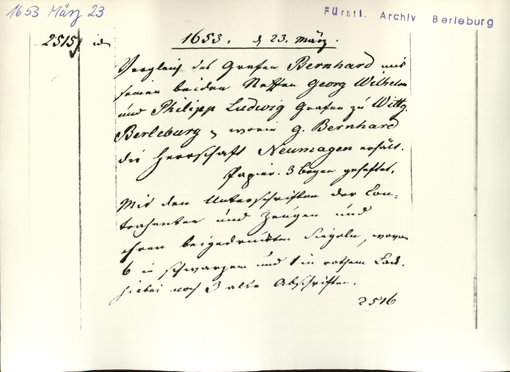 1653 März 23
Fürstl. Archiv Berleburg
2515 id.
1653. d 23. März.
Vergleich des Grafen Bernhard mit
seinen beiden Neffen Georg Wilhelm
und Philipp Ludwig Grafen zu Wittg.
Berleburg, worin G. Bernhard
die Herrschaft Neumagen erhält.
Papier. 3 Bogen geheftet.
Mit den Unterschriften der Con-
trahenten und Zeugen und
ihren beigedruckten Siegeln, wovon
6 in schwarzem und 1 in rothem Lack.
hiebei noch 3 alte Abschriften.
2516